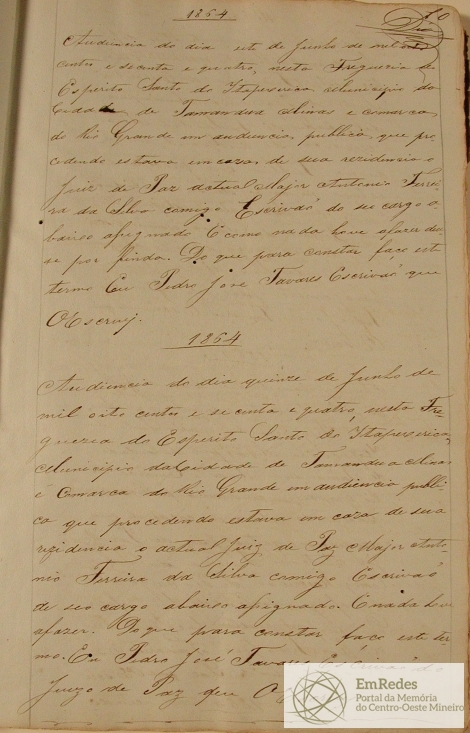 1864
70
Audiencia do dia sete de Junho de mil oito
centos e secenta e quatro, nesta Freguezia do
Espirito Santo do Itapeserica Municipio da
Cidade de Tamandua Minas e comarca
do Rio Grande em audiencia publica, que pro
cedendo estava em caza de sua rezidencia o
Juiz de Paz actual Major Antonio Ferrei
ra da Silva comigo Escrivaõ do seu cargo a
baixo asignado E como nada houve afazer deu
se por finda. Do que para constar faco este
termo Eu Pedro José Tavares Escrivaõ que
O Escrevj.
1864
Audiencia do dia quinze de Junho de
mil oito centos e secenta e quatro, nesta Fre
guezia do Espirito Santo do Itapeserica,
Municipio da Cidade de Tamandua Minas
e Comarca do Rio Grande em audiencia publi
ca que procedendo estava em caza de sua
rezidencia o actual Juiz de Paz Major Anto
nio Ferreira da Silva comigo Escrivaõ
de seo cargo abaixo asignado. E nada houve
afazer. Do que para constar faco este ter
mo. Eu Pedro José Tavares Escrivaõ do
Juizo de Paz que O
EmRedes
Portal da Memória
do Centro-Oeste Mineiro